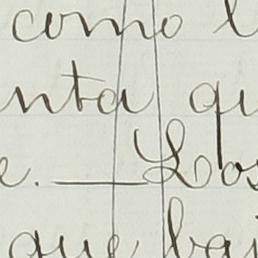 como l
nta qu
e. — Los
que baj